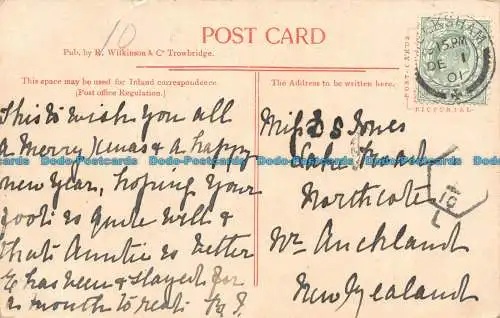 10
POST CARD
Pub. by R. Wilkinson & Co Trowbridge.
This space may be used for Inland correspondence.
[Post office Regulation.]
This to wish you all
a Merry Xmas & a happy
new year, hoping your
foot is quite well &
that Auntie is better
& has been & stayed for
a month to rest.
The Address to be written here.
Miss Jones
Lake Road
Northcote
Nr Auckland
New Zealand
POST-CARDS
PICTORIAL
KSHAM
15 PM
DE 1
01
T
10
L
Postcards Postcards Postcards Postcards Postcards Postcards Postcards